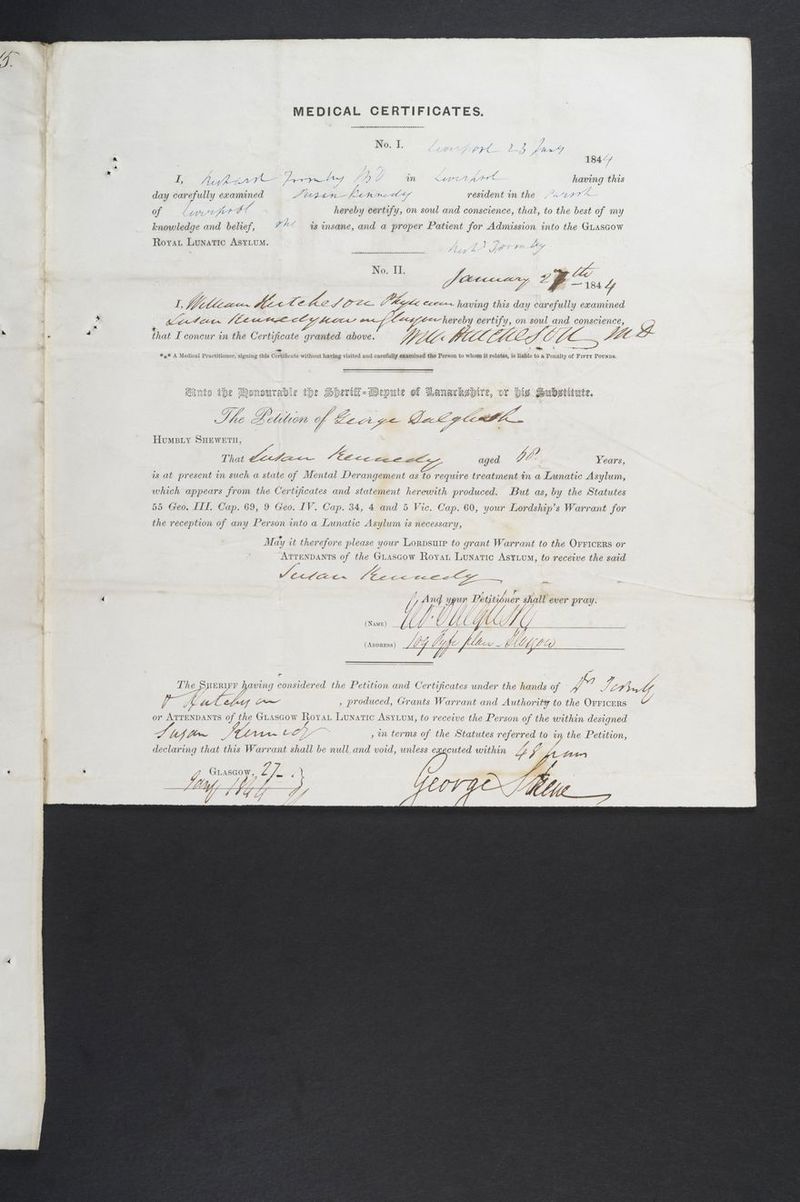 5.
MEDICAL CERTIFICATES.
No. I. Liverpool 23 Jany
1844
I, Richard Formby MD in Liverpool having this
day carefully examined Susan Kennedy resident in the Parish
of Liverpool hereby certify, on soul and conscience, that, to the best of my
knowledge and belief, she is insane, and a proper Patient for Admission into the GLASGOW
ROYAL LUNATIC ASYLUM.
Richd Formby
No. II. January 27th
1844
I, William Hutcheson Physician having this day carefully examined
Susan Kennedy now in Glasgow hereby certify, on soul and conscience,
that I concur in the Certificate granted above. Wm. Hutcheson MD
*** A Medical Practitioner, signing this Certificate without having visited and carefully examined the Person to whom it relates, is liable to a Penalty of FIFTY POUNDS.
Unto the Honourable the Sheriff-Depute of Lanarkshire, or his Substitute.
The Petition of George Dalgleish
HUMBLY SHEWETH,
That Susan Kennedy aged Years,
is at present in such a state of Mental Derangement as to require treatment in a Lunatic Asylum,
which appears from the Certificates and statement herewith produced. But as, by the Statutes
55 Geo. III. Cap. 69, 9 Geo. IV. Cap. 34, 4 and 5 Vic. Cap. 60, your Lordship's Warrant for
the reception of any Person into a Lunatic Asylum is necessary,
May it therefore please your LORDSHIP to grant Warrant to the OFFICERS or
ATTENDANTS of the GLASGOW ROYAL LUNATIC ASYLUM, to receive the said
Susan Kennedy
And your Petitioner shall ever pray.
(NAME) Geo. Dalgleish
(ADDRESS) 109 Fyfe place Glasgow
The SHERIFF having considered the Petition and Certificates under the hands of Dr Formby
& Hutcheson, produced, Grants Warrant and Authority to the OFFICERS
or ATTENDANTS of the GLASGOW ROYAL LUNATIC ASYLUM, to receive the Person of the within designed
Susan Kennedy, in terms of the Statutes referred to in the Petition,
declaring that this Warrant shall be null and void, unless executed within 48 hours
GLASGOW, 27
Jany 1844
George Skene